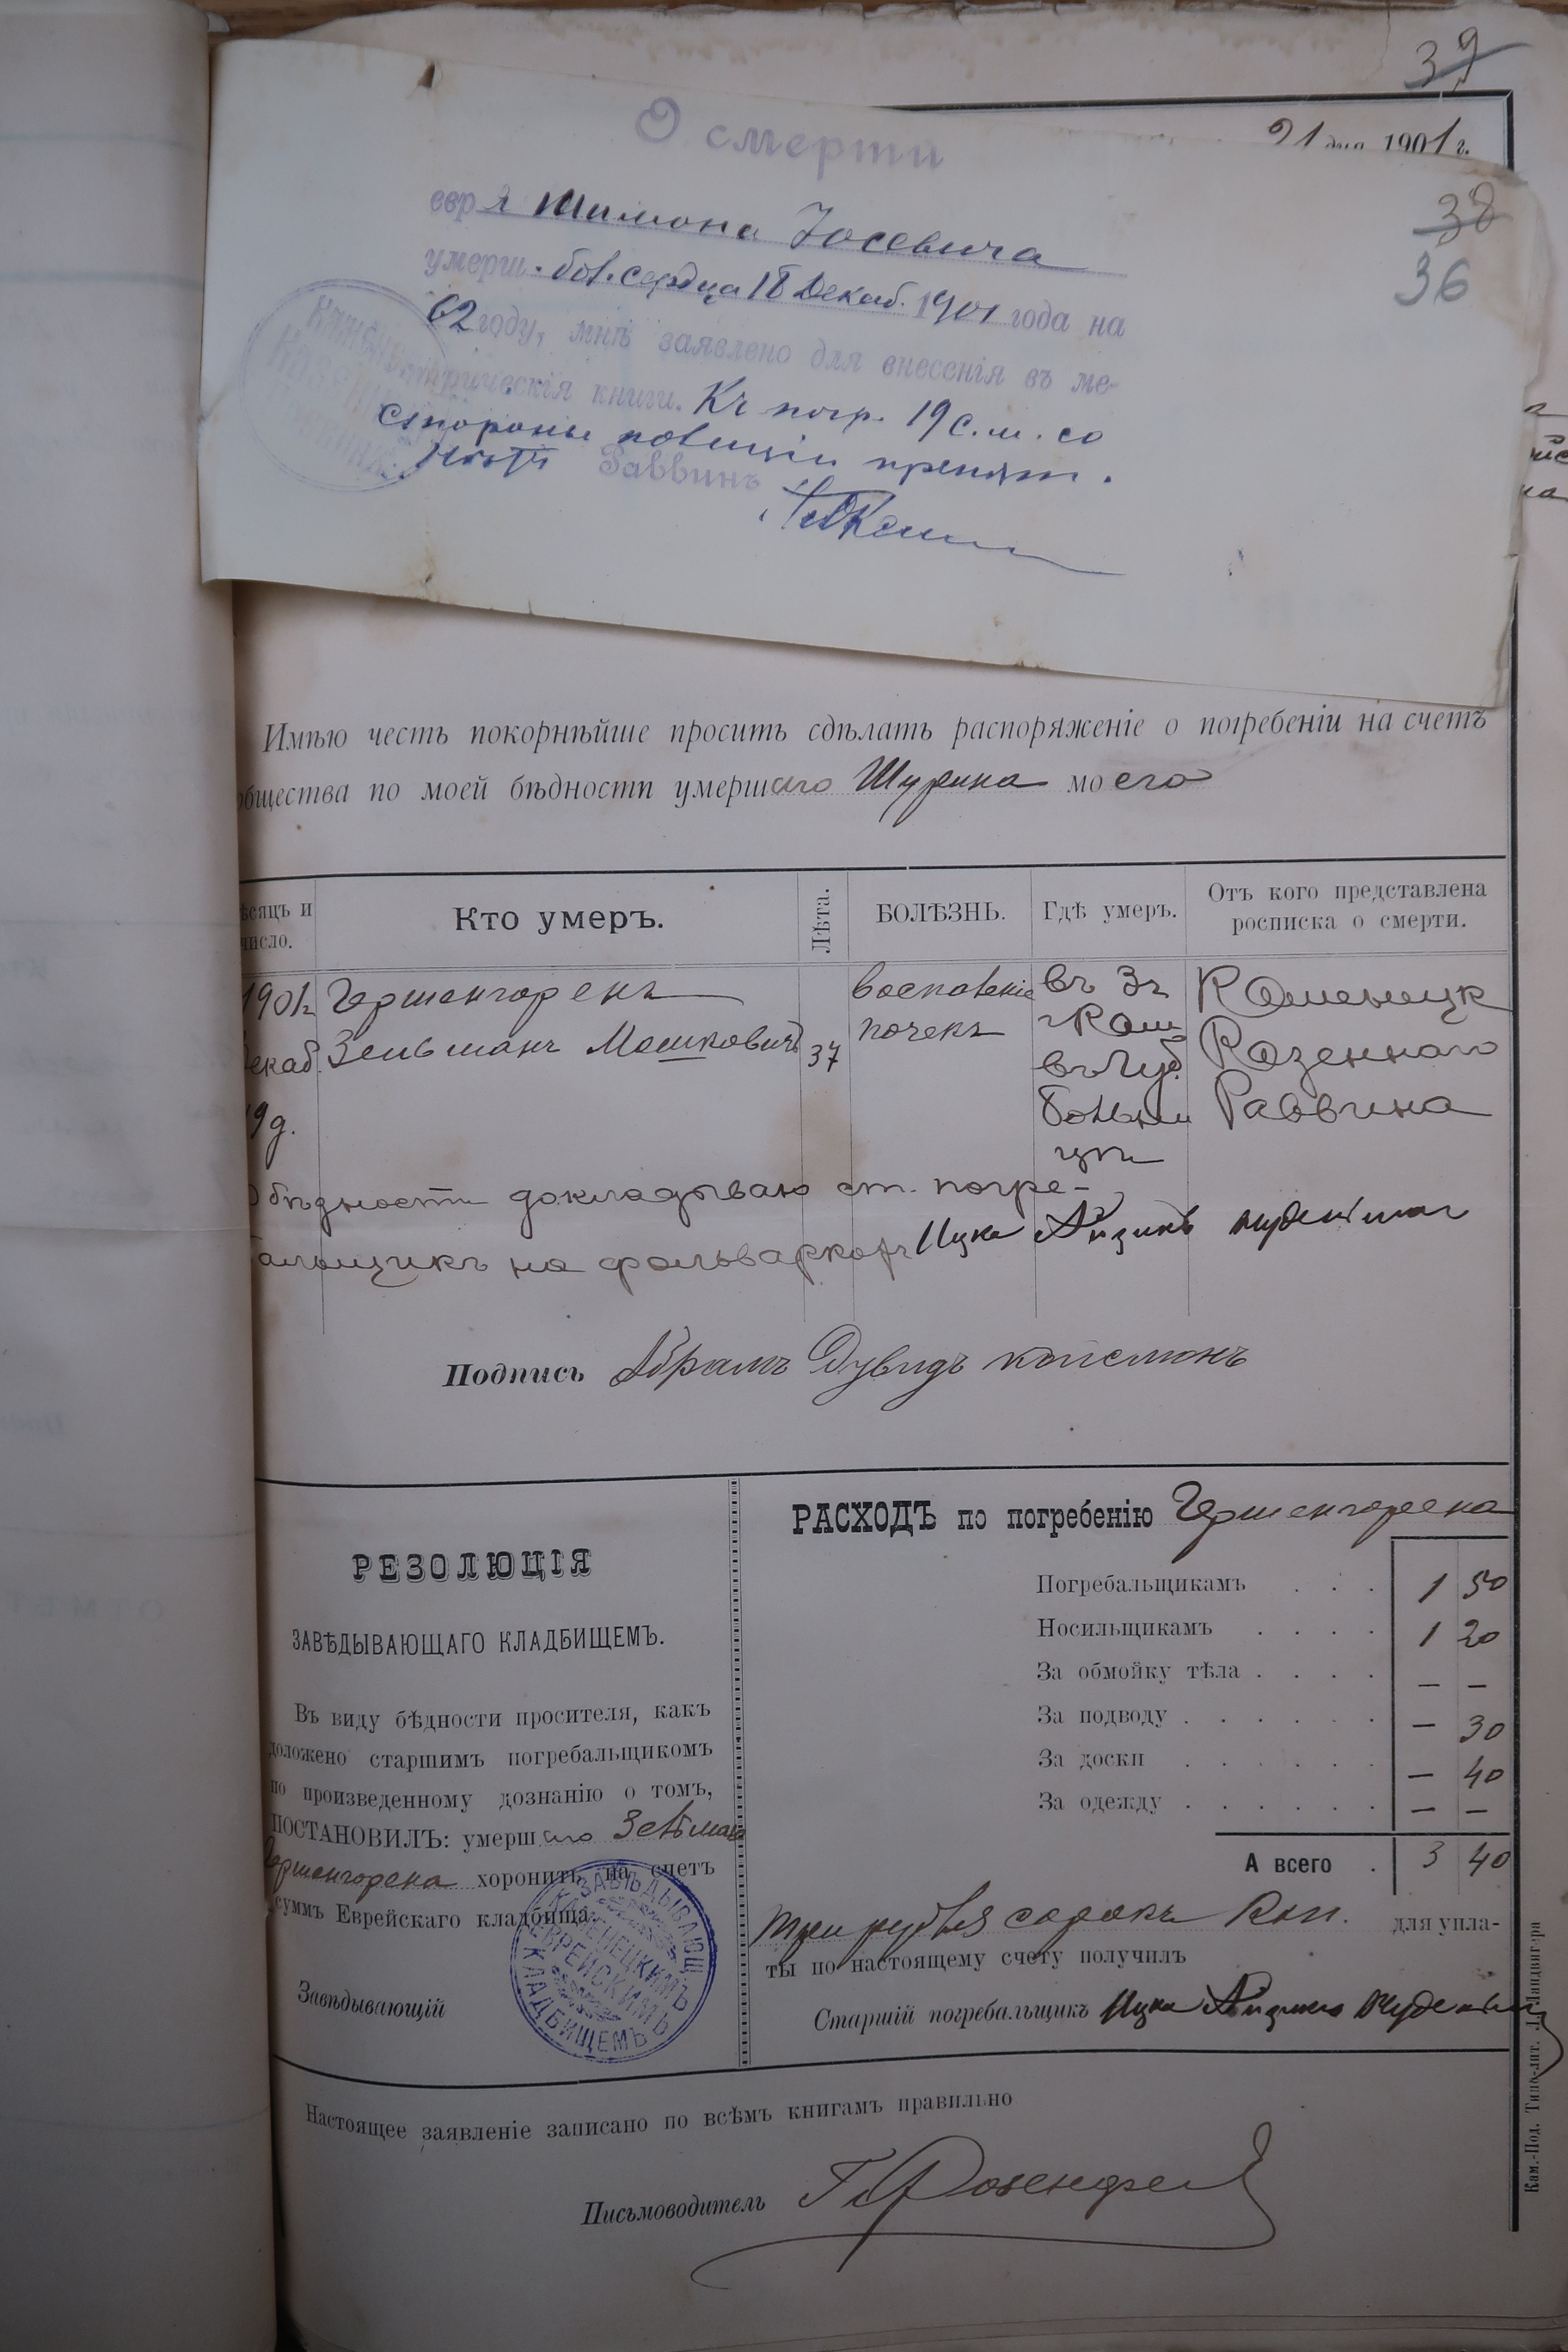 39
21 дня 1901 г.
О смерти
38
евр я Шимона Іосевича
36
умерш. бол. сердца 18 Декаб. 1901 года на
62 году, мнѣ заявлено для внесенія въ ме-
трическія книги. Къ погр. 19 с.м. со
стороны полиціи препят.
нѣтъ Раввинъ
Имѣю честь покорнѣйше просить сдѣлать распоряженіе о погребеніи на счетъ
общества по моей бѣдности умершаго Шурина моего
ѣсяцъ и
число.
Кто умеръ.
Лѣта.
БОЛѢЗНЬ.
Гдѣ умеръ.
Отъ кого представлена
росписка о смерти.
1901г
Декаб.
19 д.
Гершенгоренъ
Зельманъ Мошковичъ
37
воспаленіе
почекъ
въ
г Кам
въ Губ.
больни
цѣ
Каменецк
Казеннаго
Раввина
О бѣдности докладываю ст. погре-
бальщикъ на фольваркахъ Ицко Айзикъ
Подпись Абрамъ Дувидъ
РЕЗОЛЮЦІЯ
ЗАВѢДЫВАЮЩАГО КЛАДБИЩЕМЪ.
Въ виду бѣдности просителя, какъ
доложено старшимъ погребальщикомъ
по произведенному дознанію о томъ,
ПОСТАНОВИЛЪ: умершаго Зельмана
Гершенгорена хоронить на счетъ
суммъ Еврейскаго кладбища.
Завѣдывающій
ЗАВѢДЫВАЮЩ
КАМЕНЕЦКИМЪ
ЕВРЕЙСКИМЪ
КЛАДБИЩЕМЪ
РАСХОДЪ по погребенію Гершенгорена
Погребальщикамъ . . . 1 50
Носильщикамъ . . . . 1 20
За обмойку тѣла . . . . — —
За подводу . . . . . . — 30
За доски . . . . . . — 40
За одежду . . . . . . — —
А всего . 3 40
Три рубля сорокъ Коп. для упла-
ты по настоящему счету получилъ
Старшій погребальщикъ Ицко Айзикъ
Настоящее заявленіе записано по всѣмъ книгамъ правильно
Письмоводитель
Кам.-Под. Типо-лит. Л. Ландвигера